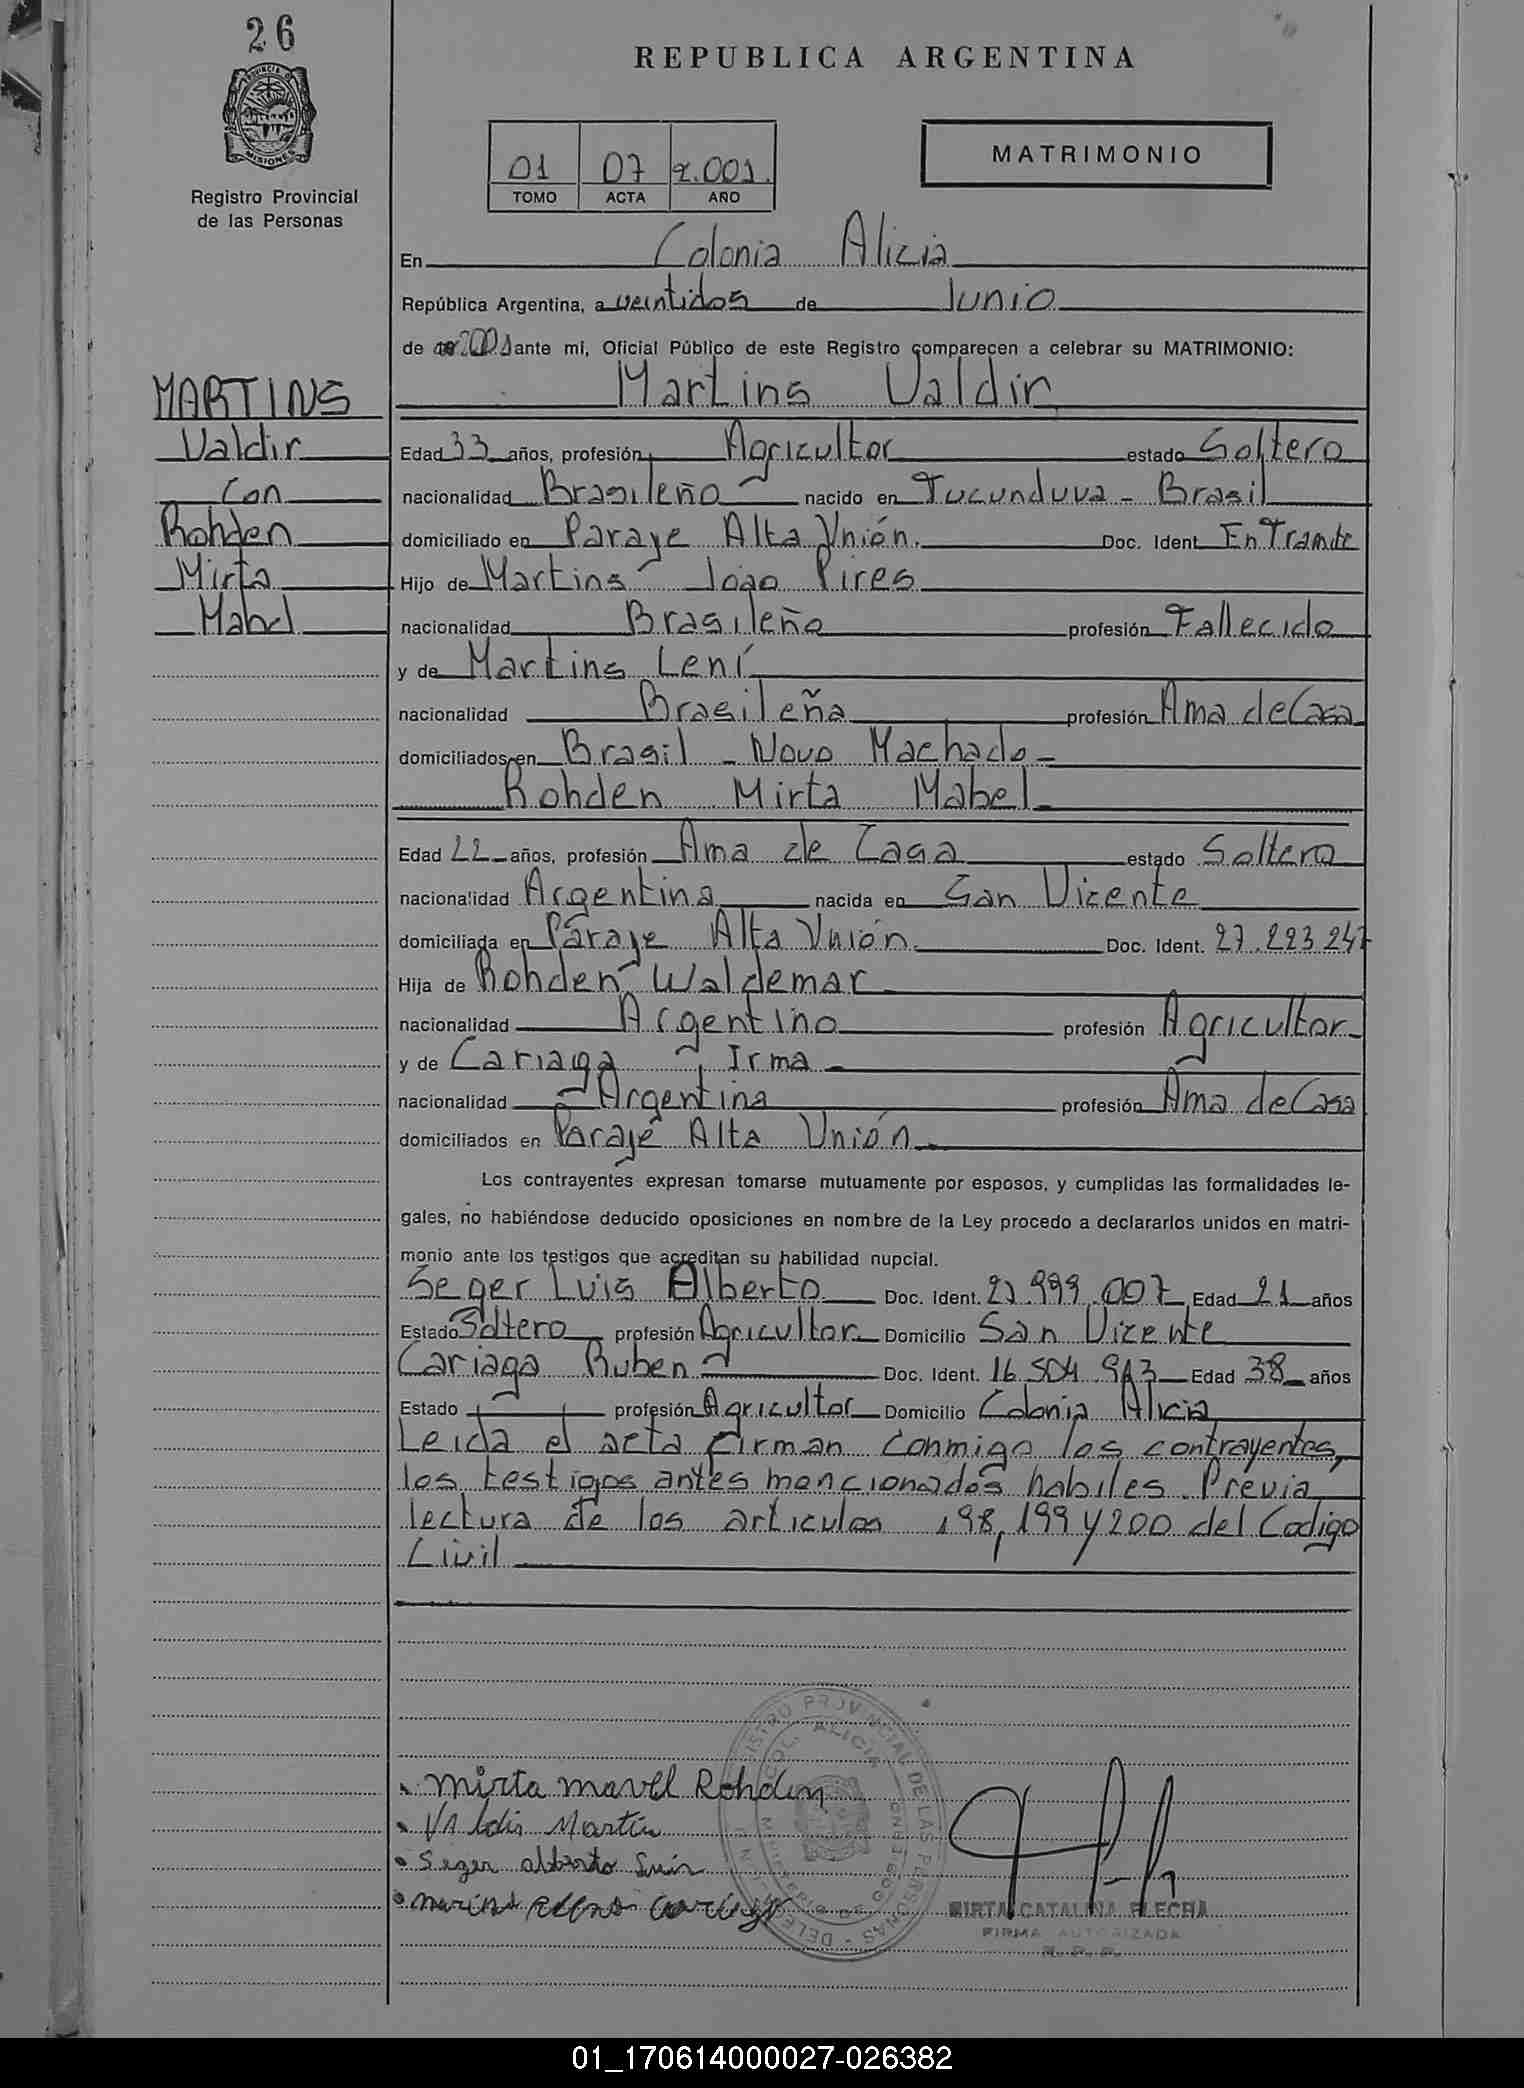 26
PROVINCIA D
MISIONES
Registro Provincial
de las Personas
REPUBLICA ARGENTINA
01 07 2.001.
TOMO ACTA AÑO
MATRIMONIO
En Colonia Alicia
República Argentina, a veintidos de Junio
de 2001 ante mi, Oficial Público de este Registro comparecen a celebrar su MATRIMONIO:
MARTINS
Valdir
Con
Rohden
Mirta
Mabel
Martins Valdir
Edad 33 años, profesión Agricultor estado Soltero
nacionalidad Brasileño nacido en Tucunduva - Brasil
domiciliado en Paraje Alta Unión. Doc. Ident. En Tramite
Hijo de Martins João Pires
nacionalidad Brasileño profesión Fallecido
y de Martins Lení
nacionalidad Brasileña profesión Ama de Casa
domiciliados en Brasil - Novo Machado -
Rohden Mirta Mabel
Edad 22 años, profesión Ama de Casa estado Soltera
nacionalidad Argentina nacida en San Vicente
domiciliada en Paraje Alta Unión Doc. Ident. 27.223.247
Hija de Rohden Waldemar
nacionalidad Argentino profesión Agricultor
y de Cariaga Irma
nacionalidad Argentina profesión Ama de Casa
domiciliados en Paraje Alta Unión
Los contrayentes expresan tomarse mutuamente por esposos, y cumplidas las formalidades le-
gales, no habiéndose deducido oposiciones en nombre de la Ley procedo a declararlos unidos en matri-
monio ante los testigos que acreditan su habilidad nupcial.
Seger Luis Alberto Doc. Ident. 27.999.007 Edad 21 años
Estado Soltero profesión Agricultor Domicilio San Vicente
Cariaga Ruben Doc. Ident. 16.504.913 Edad 38 años
Estado profesión Agricultor Domicilio Colonia Alicia
Leida el acta firman conmigo los contrayentes,
los testigos antes mencionados habiles. Previa
lectura de los articulos 198, 199 y 200 del Codigo
Civil
REGISTRO PROVINCIAL DE LAS PERSONAS - DELEGACION
COL. ALICIA
MINISTERIO DE GOBIERNO
mirta mavel Rohden
Valdir Martin
Seger alberto Luis
cariaga
MIRTA CATALINA FLECHA
FIRMA AUTORIZADA
R. P. P.
01_170614000027-026382